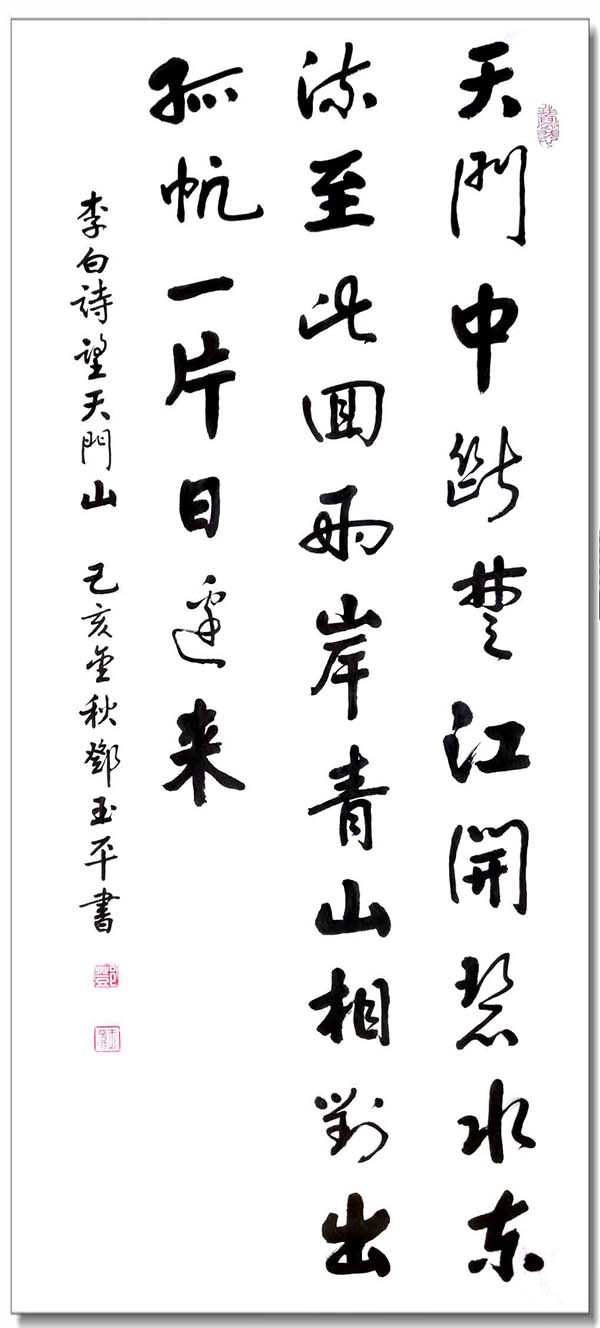 天門中斷楚江開碧水东
流至此回兩岸青山相對出
孤帆一片日邊来
李白詩望天門山 己亥金秋鄧玉平書